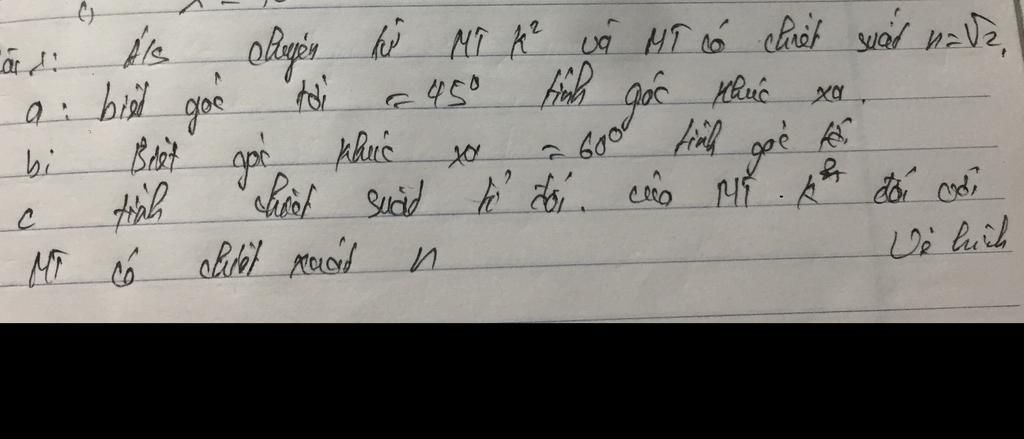 c)
Bài 1: A/s chuyển từ MT k² và MT có chiết suất n=√2.
a: biết góc tới = 45⁰ tính góc khúc xạ.
b: Biết góc khúc xạ = 60⁰ tính góc tới
c tính chiết suất tỉ đối. của MT. k² đối với
MT có chiết xuất n Vẽ hình